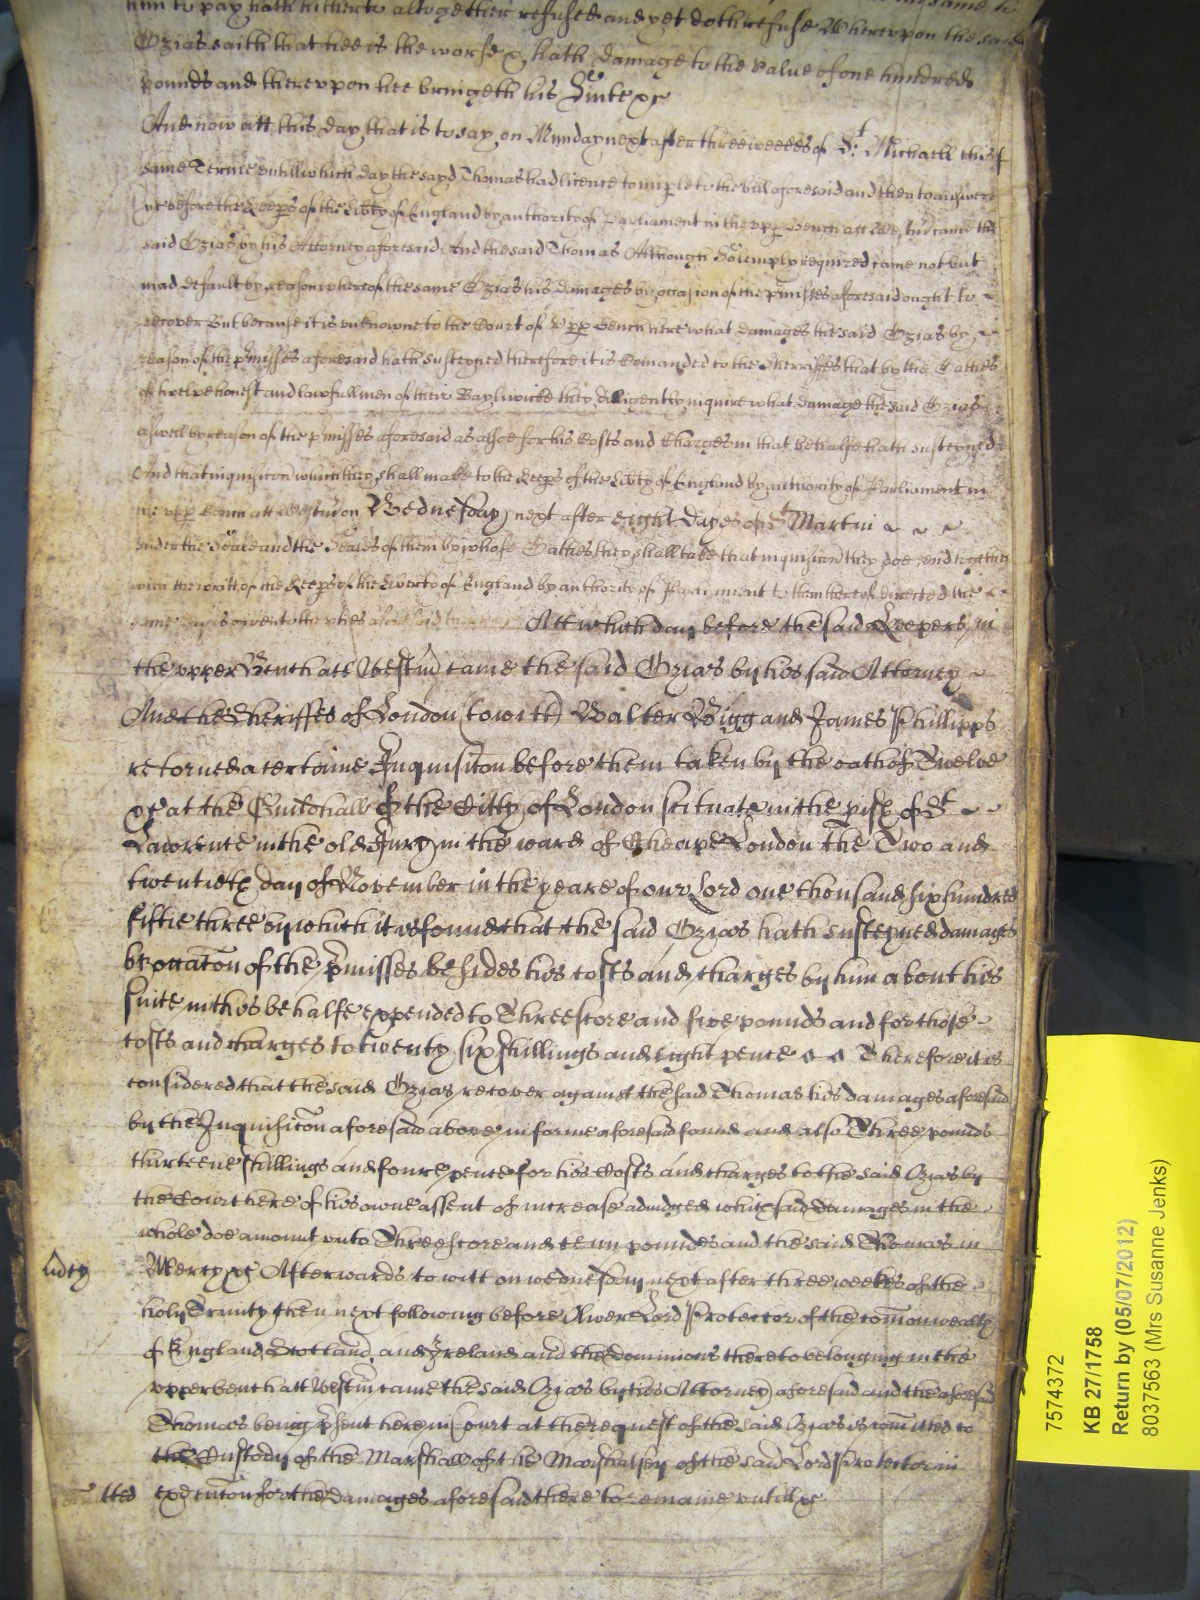 him to pay hath hitherto altogether refused and yet doth refuse Whereupon the said
Ozias saith that hee is the worse & hath damage to the value of one hundred
pounds and thereupon hee bringeth his Suite &c
And now att this day that is to say on Munday next after three weekes of St Michaell this
same Terme untill which day the sayd Thomas had licence to imparle to the bill aforesaid and then to answere
&c before the Keeps of the Libty of England by authority of Parliament in the upp Bench att Westm came the
said Ozias by his Attorney aforesaid And the said Thomas Although Solemply required came not but
mad default by reason whereof the same Ozias his damages by occasion of the pmisses aforesaid ought to
recover But because it is unknowne to the Court of Upp Bench here what damages the said Ozias by
reason of the pmisses aforesaid hath susteyned therefore it is Comanded to the Sherriffes that by the Oathes
of twelve honest and lawfull men of their Bayliwicke they diligently inquire what damage the said Ozias
aswell by reason of the pmisses aforesaid as alsoe for his Costs and Charges in that behalfe hath susteyned
And that inquisicon which they shall make to the Keeps of the Libty of England by authority of Parliament in
the upp Bench att Westm on Wednesday next after eight dayes of St Martin
under the Seale and the Seales of them by whose Oathes they shall take that inquisicon they doe send together
with the writt of the Keeps of the Liberty of England by authoritie of Parliament to them thereof directed the
same day is given to the pties aforesaid Att which day before the said Keepers in
the upper Bench att Westm came the said Ozias by his said Attorney
And the Sheriffes of London (to witt) Walter Bigg and James Phillipps
retorned a certaine Inquisicon before them taken by the oath of Twelve
&c at the Guildhall of the Citty of London scituate in the pish of St
Lawrence in the old Jury in the ward of Cheape London the Two and
twentieth day of November in the yeare of our Lord one thousand six hundred
fiftie three by which it is found that the said Ozias hath susteyned damages
by occacon of the pmisses besides his costs and charges by him about his
suite in this behalfe expended to Threescore and five pounds and for those
costs and charges to twenty six shillings and eight pence Therefore it is
considered that the said Ozias recover against the said Thomas his damages aforesaid
by the Inquisicon aforesaid above in forme aforesaid found and also Three pounds
thirteene shillings and foure pence for his Costs and charges to the said Ozias by
the Court here of his owne assent of increase adiudged which said damages in the
whole doe amount unto Threescore and tenn pounds and the said Thomas in
Mercy &c Afterwards to witt on wednesday next after three weekes of the
holy Trinity then next following before Oliver Lord Protector of the comonwealth
of England Scotland and Ireland and the Dominions thereto belonging in the
upper bench att Westm came the said Ozias by his Attorney aforesaid and the aforesaid
Thomas being psent here in Court at the request of the said Ozias is comitted to
the Custody of the Marshall of the Marshalsey of the said Lord Protector in
comitted execucon for the damages aforesaid there to remaine untill &c
7574372
KB 27/1758
Return by (05/07/2012)
8037563 (Mrs Susanne Jenks)